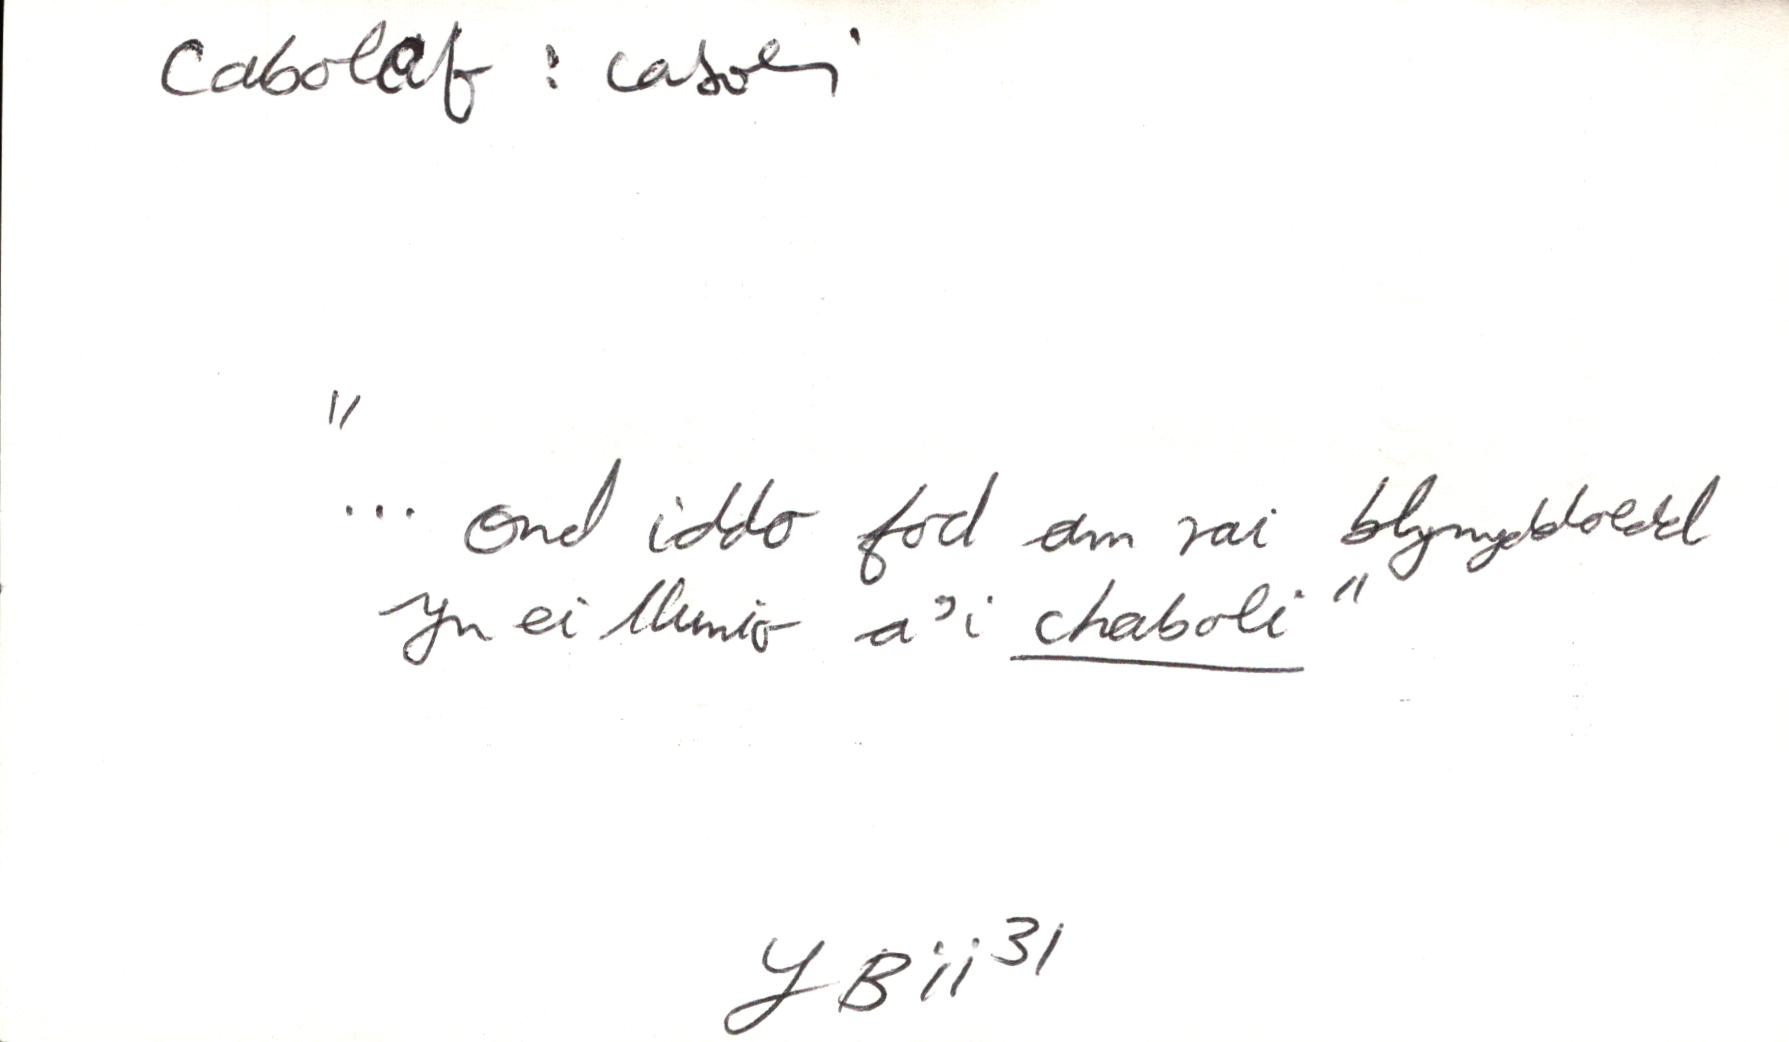 Cabolaf : caboli
"
... ond iddo fod am rai blynyddoedd
yn ei llunio a'i chaboli"
Y B ii 31